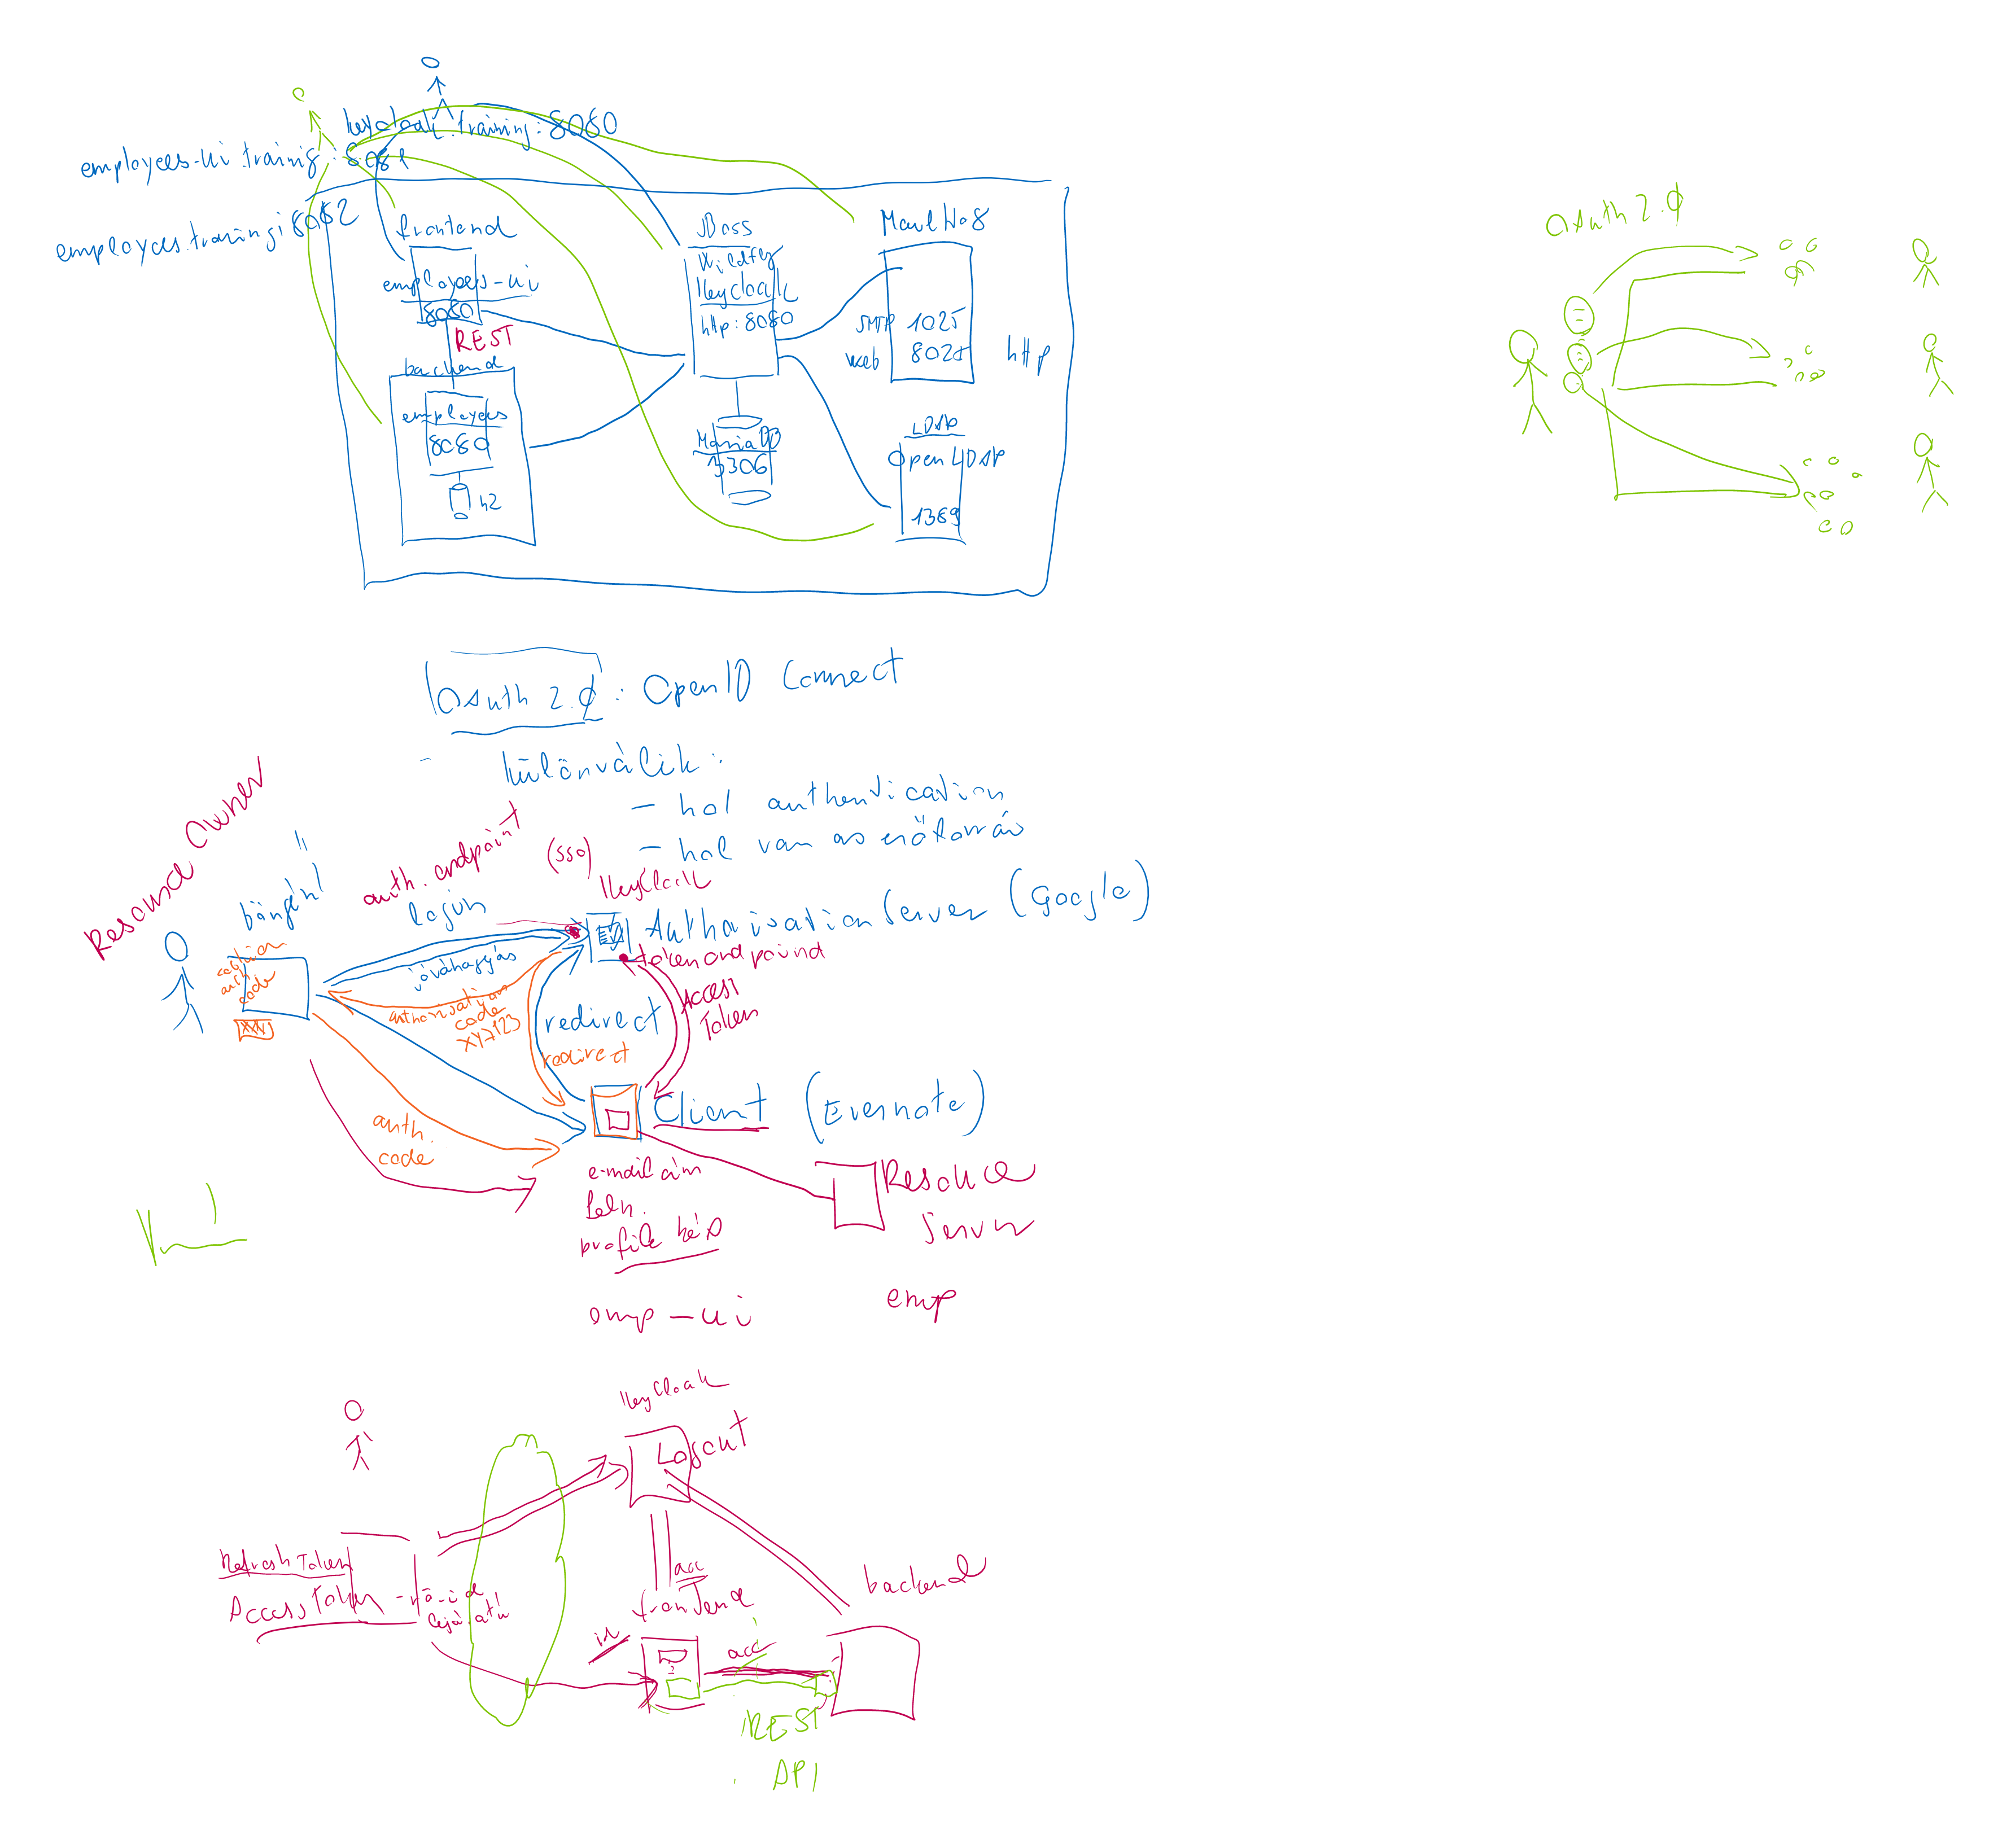 keycloak.training:8080
employees-ui.training:8081
employees.training:8082
frontend
employees-ui
8080
REST
backend
employees
8080
h2
JBoss
Wildfly
Keycloak
http:8080
MariaDB
3306
MailHog
SMTP 1025
web 8025
http
LDAP
OpenLDAP
1389
OAuth 2.0
OAuth 2.0: OpenID Connect
különválik:
- hol authentication
- hol van az erőforrás
Resource Owner
böngésző
auth. endpoint
(SSO)
KeyCloak
login
Authorisation Server (Google)
token endpoint
jóváhagyás
authorisation
code
XYZ123
auth
code
redirect
redirect
Access
Token
Client (Evernote)
auth.
code
e-mail cím
profile kép
Resource
Server
emp-ui
emp
KeyCloak
Logout
Refresh Token
Access Token - rövid
lejáratú
acc
frontend
backend
acc
REST
API